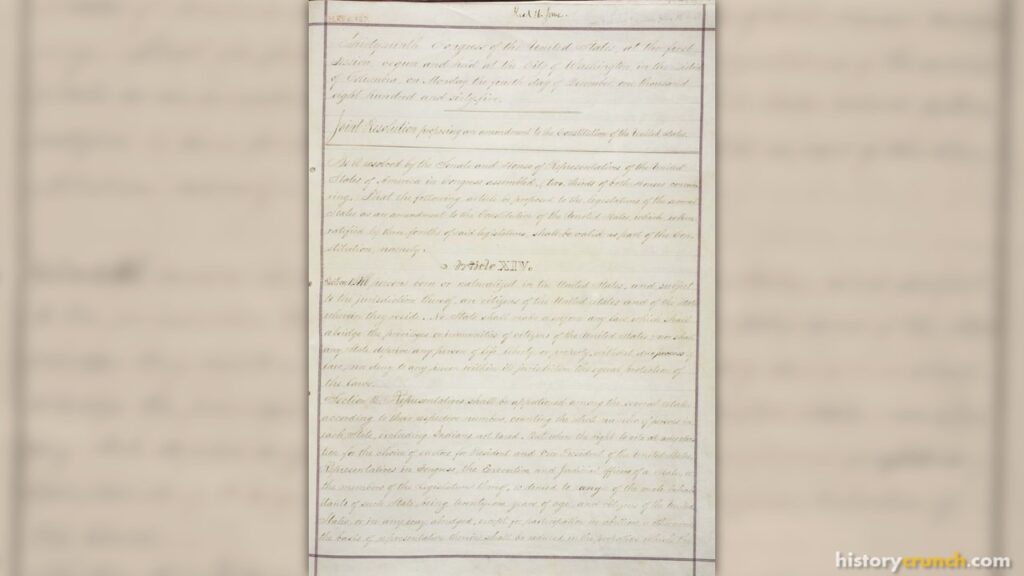 Thirty-ninth Congress of the United States, at the first
Session, begun and held at the City of Washington, in the District
of Columbia, on Monday the fourth day of December one thousand
eight hundred and sixty-five.
Joint Resolution proposing an amendment to the Constitution of the United States.
Be it resolved by the Senate and House of Representatives of the United
States of America in Congress assembled, (two thirds of both Houses concur-
ring,) That the following article be proposed to the legislatures of the several
States as an amendment to the Constitution of the United States, which, when
ratified by three fourths of said legislatures, shall be valid as part of the Con-
stitution, namely:
Article XIV.
Section 1. All persons born or naturalized in the United States, and subject
to the jurisdiction thereof, are citizens of the United States and of the State
wherein they reside. No State shall make or enforce any law which shall
abridge the privileges or immunities of citizens of the United States; nor shall
any State deprive any person of life, liberty, or property, without due process of
law, nor deny to any person within its jurisdiction the equal protection of
the laws.
Section 2. Representatives shall be apportioned among the several States
according to their respective numbers, counting the whole number of persons in
each State, excluding Indians not taxed. But when the right to vote at any elec-
tion for the choice of electors for President and Vice President of the United States,
Representatives in Congress, the Executive and Judicial officers of a State, or
the members of the Legislature thereof, is denied to any of the male inhabi-
tants of such State, being twenty-one years of age, and citizens of the United
States, or in any way abridged, except for participation in rebellion, or other crime,
the basis of representation therein shall be reduced in the proportion which the
historycrunch.com